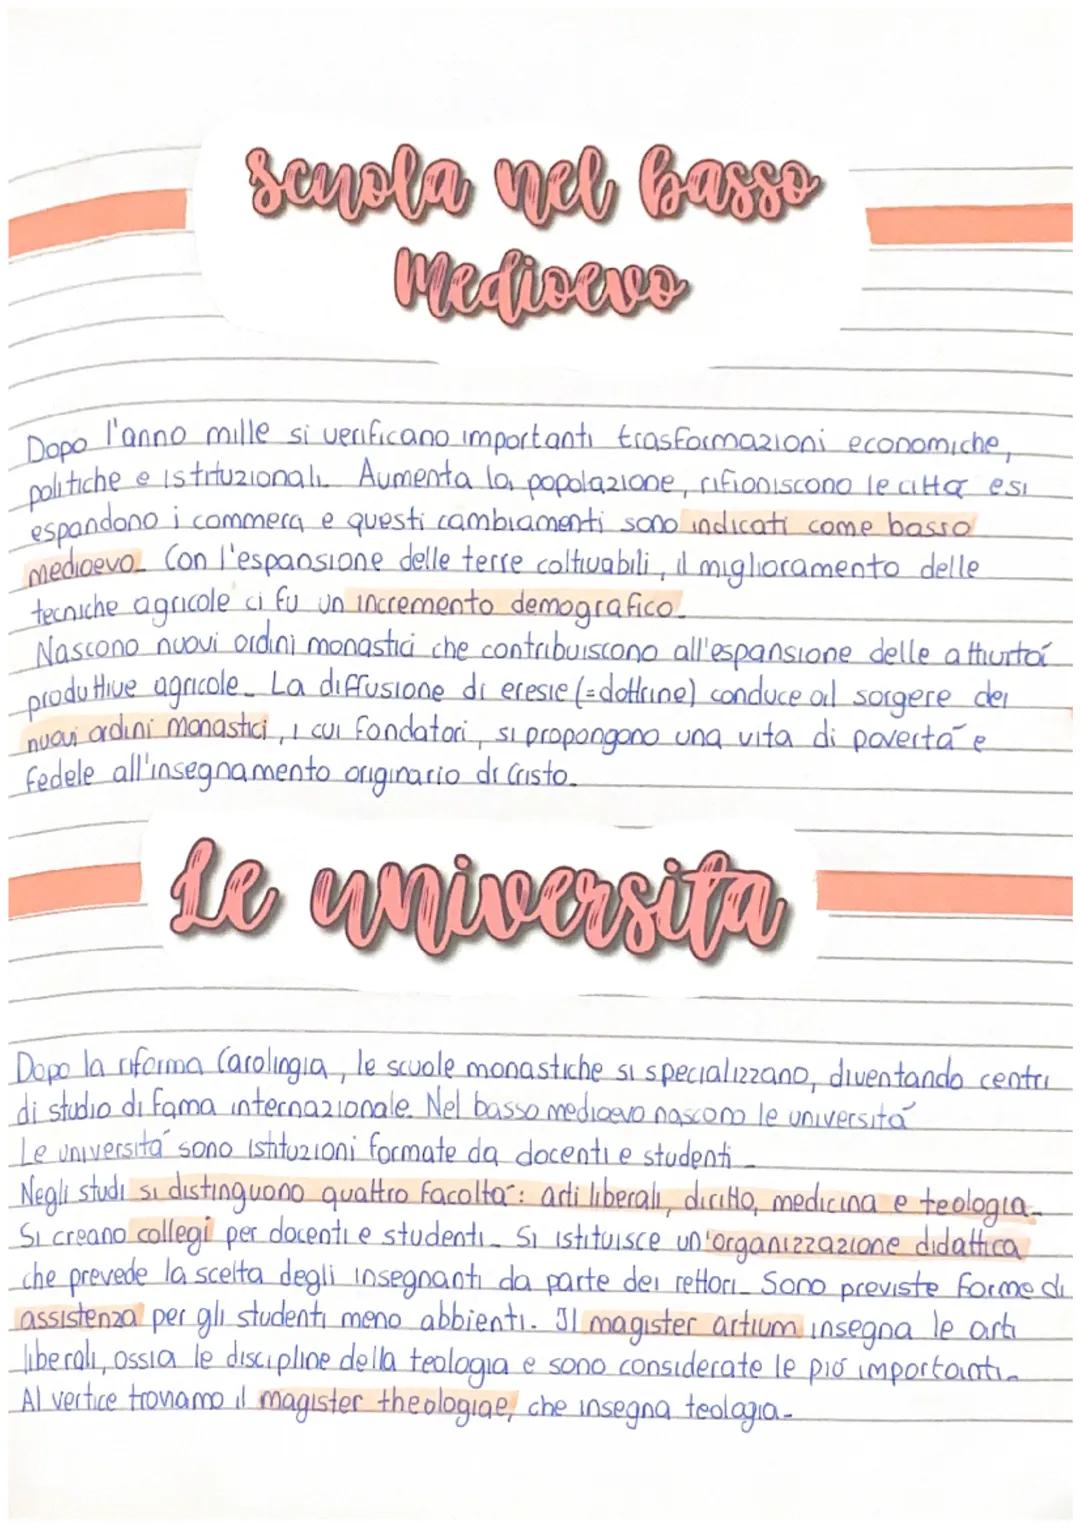 scuola nel basso
Medioevo
Dopo l'anno mille si verificano importanti trasformazioni economiche,
politiche e istituzionali. Aumenta la popolazione, rifioriscono le città e si
espandono i commerci e questi cambiamenti sono indicati come basso
medioevo. Con l'espansione delle terre coltivabili, il miglioramento delle
tecniche agricole ci fu un incremento demografico.
Nascono nuovi ordini monastici che contribuiscono all'espansione delle attività
produttive agricole. La diffusione di eresie (=dottrine) conduce al sorgere dei
nuovi ordini monastici, i cui fondatori, si propongono una vita di povertà e
fedele all'insegnamento originario di Cristo.
Le universita
Dopo la riforma Carolingia, le scuole monastiche si specializzano, diventando centri
di studio di fama internazionale. Nel basso medioevo nascono le università
Le università sono istituzioni formate da docenti e studenti.
Negli studi si distinguono quattro facoltà: arti liberali, diritto, medicina e teologia.
Si creano collegi per docenti e studenti. Si istituisce un'organizzazione didattica
che prevede la scelta degli insegnanti da parte dei rettori. Sono previste forme di
assistenza per gli studenti meno abbienti. Il magister artium insegna le arti
liberali, ossia le discipline della teologia e sono considerate le più importanti.
Al vertice troviamo il magister theologiae, che insegna teologia.